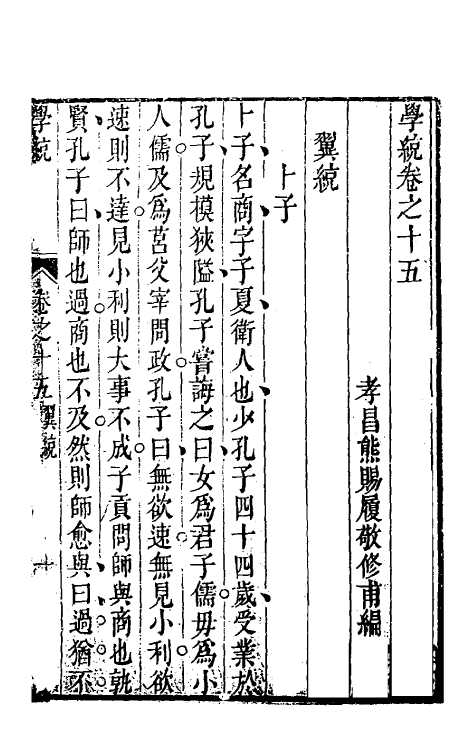 學統卷之十五
孝昌熊賜履敬修甫編
翼統
卜子
卜子名商字子夏衛人也少孔子四十四歲受業於
孔子規模狹隘孔子嘗誨之曰女爲君子儒毋爲小
人儒及爲莒父宰問政孔子曰無欲速無見小利欲
速則不達見小利則大事不成子貢問師與商也孰
賢孔子曰師也過商也不及然則師愈與曰過猶不
學統
卷之十五 翼統